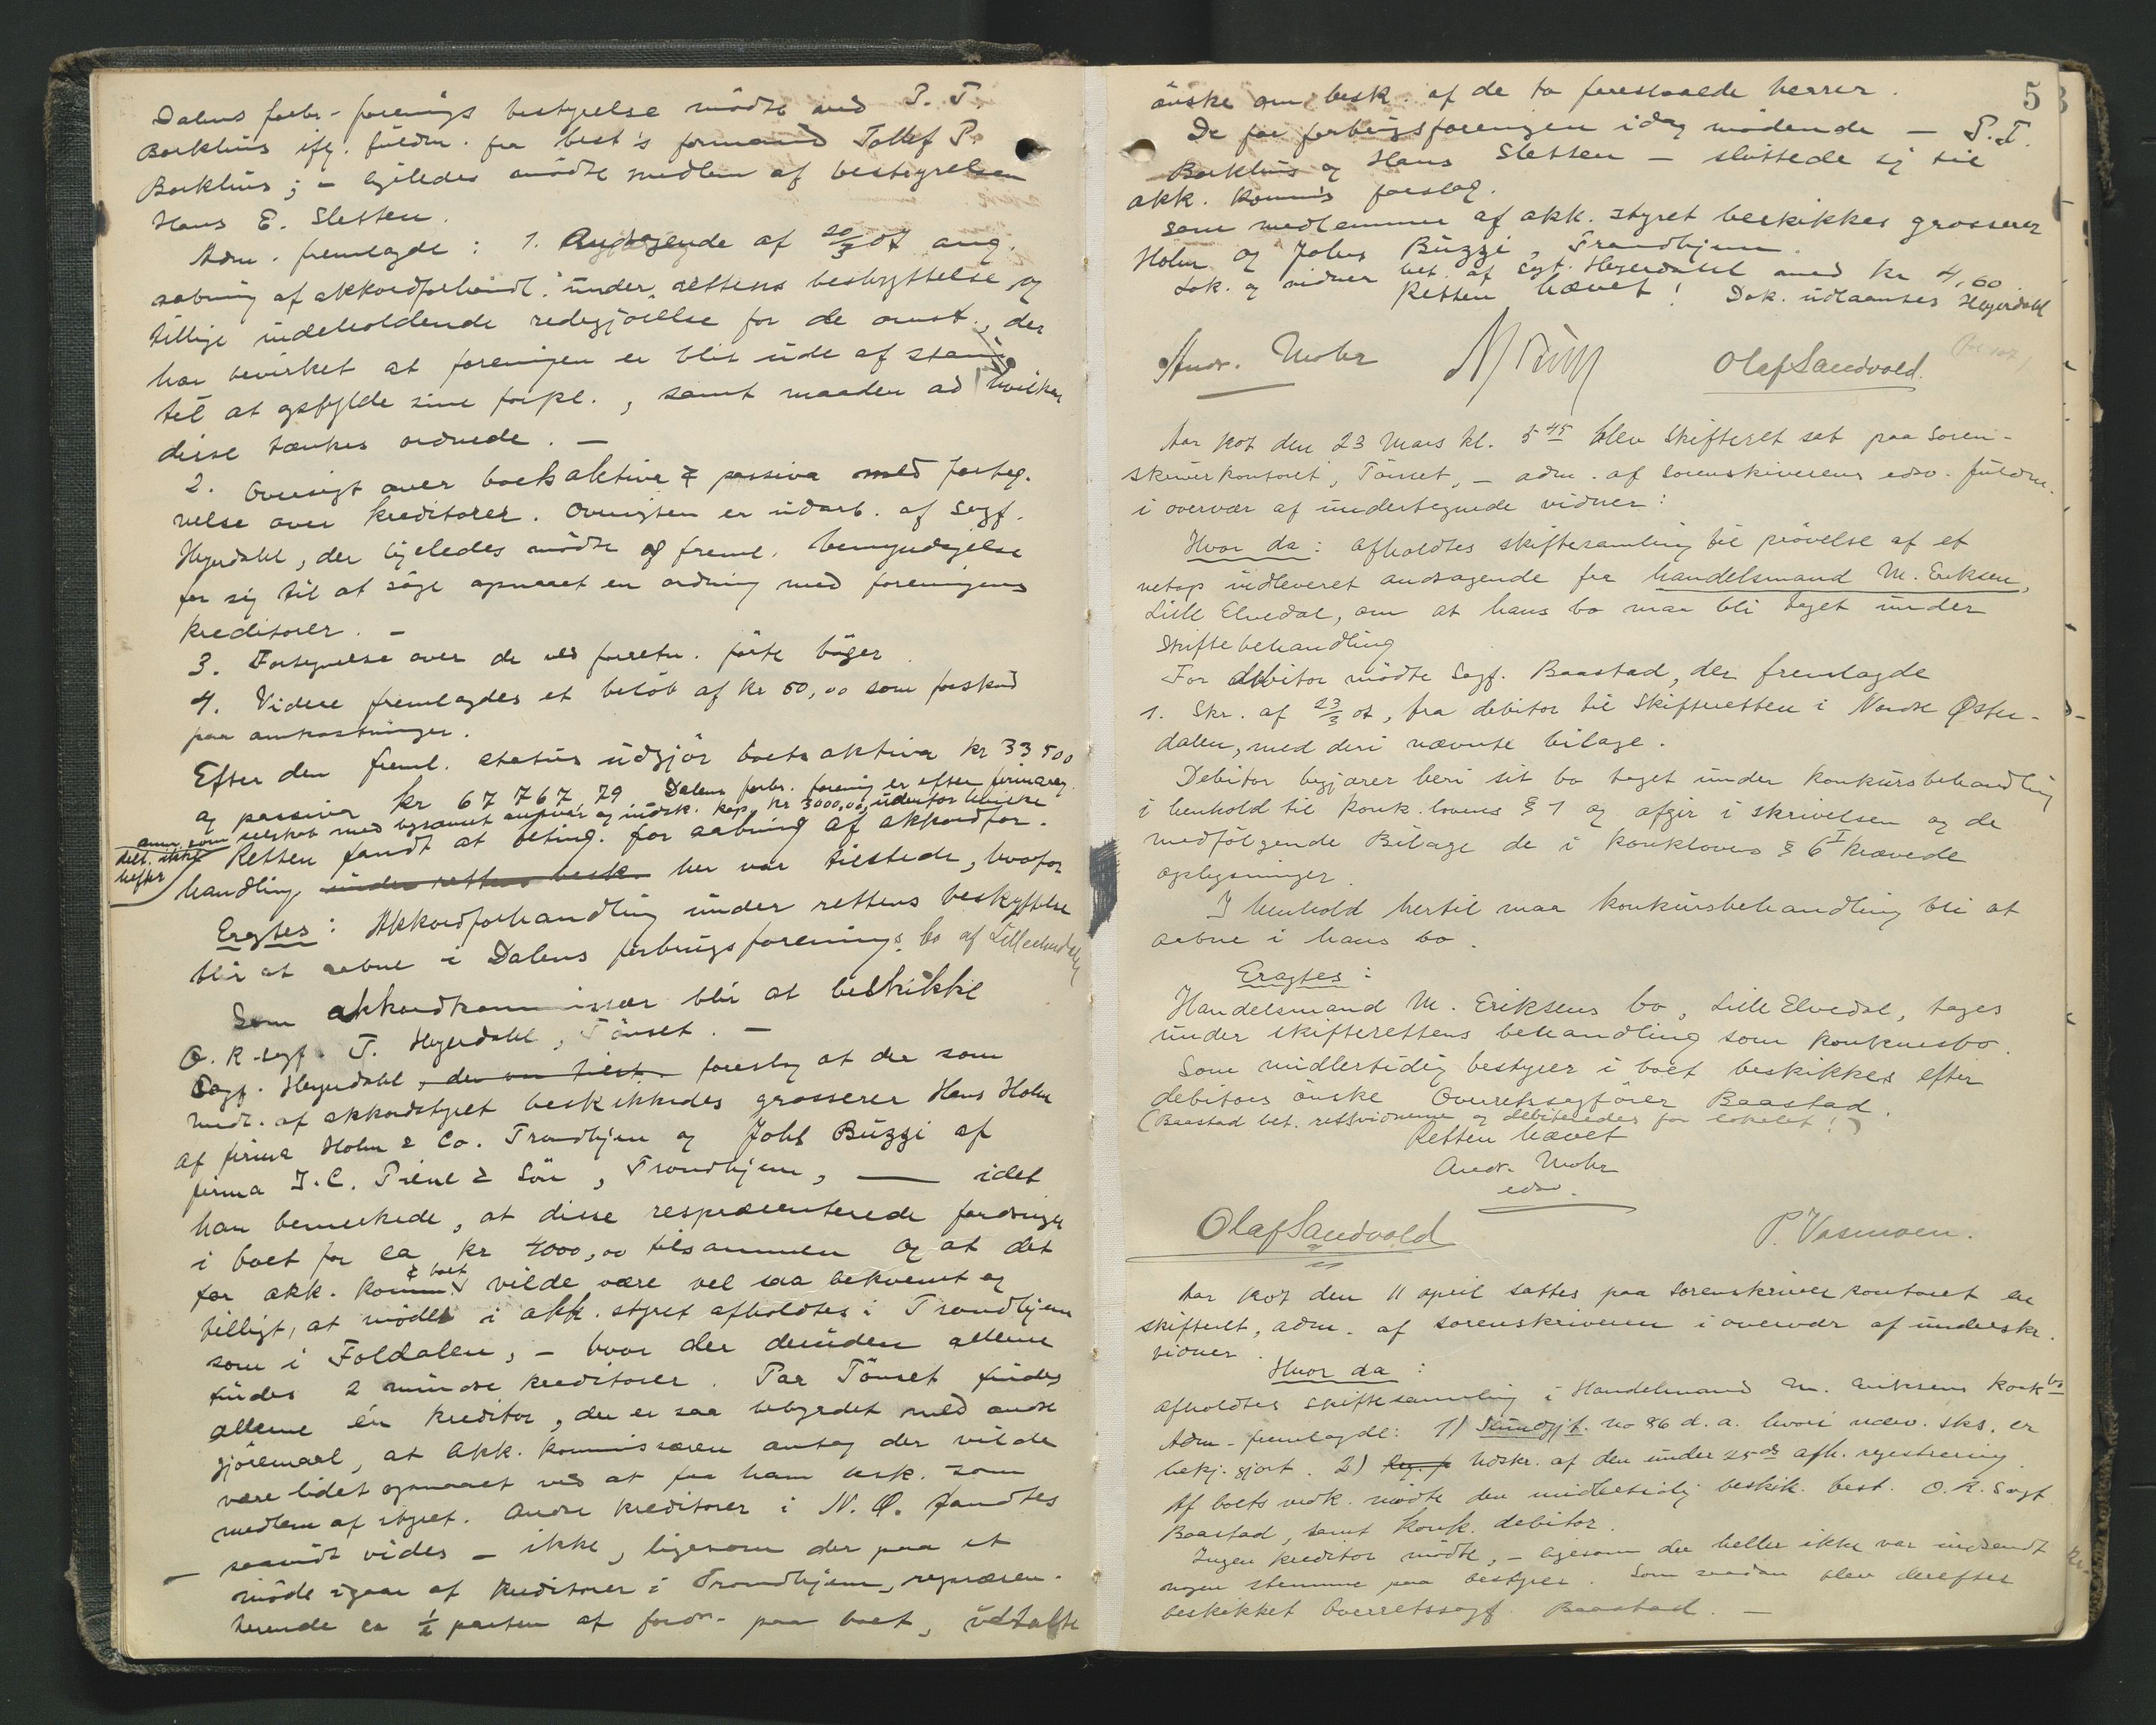 Dalens forbr-forenings bestyrelse mödte ved P. T.
Borkhus iflg. fuldm. fra best's formand Tollef P.
Borkhus; - ligeledes mödte medlem af bestyrelsen
Hans E. Sletten.
Adm. fremlagde: 1. Andragende af 20/3 07 ang.
aabning af akkordforhandl. under rettens beskyttelse og
tillige indeholdende redegjörelse for de omst., der
har bevirket at foreningen er blit ude af stand
til at opfylde sine forpl., samt maaden ad hvilken
disse tænkes ordnede. -
2. Oversigt over boets aktiva & passiva med forteg-
nelse over kreditorer. Oversigten er udarb. af Sagf.
Heyerdahl, der ligeledes mödte og freml. bemyndigelse
for sig til at söge opnaaet en ordning med foreningens
kreditorer. -
3. Fortegnelse over de ved forretn. förte böger.
4. Videre fremlagdes et belöb af kr 50,00 som forskud
paa omkostninger.
Efter den freml. status udgjör boets aktiva kr 33 500
og passiva kr 67 767,79 Dalens forbr. forening er efter firmareg.
anm. som selskab med begrænset ansvar og indsk. kap. kr 3000,00, udenfor hvilke
delt. ikke
hefter
Retten fandt at beting. for aabning af akkordfor-
handling under rettens besk. her var tilstede, hvorfor
Eragtes: Akkordforhandling under rettens beskyttelse
blir at aabne i Dalens forbrugsforenings bo af Lilleelvedalen
Som akkordkommissær blir at beskikke
O.R.sagf. T. Heyerdahl, Tönset. -
Sagf. Heyerdahl, der var tilst. foreslog at der som
medl. af akkordstyret beskikkedes grosserer Hans Holm
af firma Holm & Co. Trondhjem og Johs Buzzi af
firma I.C. Piene & Sön, Trondhjem, — idet
han bemerkede, at disse repræsenterede fordringer
i boet for ca kr 4000,00 tilsammen og at det
for akk. komm. & boet vilde være vel saa bekvemt og
billigt, at möder i akk. styret afholdtes i Trondhjem
som i Foldalen, - hvor der desuden allene
findes 2 mindre kreditorer. Paa Tönset findes
allene én kreditor, der er saa bebyrdet med andre
gjöremaal, at akk. kommissæren antog der vilde
være lidet opnaaet ved at faa ham besk. som
medlem af styret. Andre kreditorer i N. Ø. fandtes
- saavidt vides - ikke, ligesom der paa et
möde igaar af kreditorer i Trondhjem, repræsen-
terende ca 1/2 parten af fordr. paa boet, udtaltes
5
önske om besk. af de to foreslaaede herrer.
De for forbrugsforeningen idag mödende - P.T.
Borkhus og Hans Sletten - sluttede sig til
akk. komm's forslag.
Som medlemmer af akk. styret beskikkes grosserer
Holm og Johs Buzzi, Trondhjem.
Lok. og vidner bet. af Sagf. Heyerdahl med kr 4,60.
Retten hævet! Dok. udlaantes Heyerdahl
Andr. Mohr Olaf Sandvold.
Aar 1907 den 23 Mars kl. 5 45 blev Skifteret sat paa Soren-
skriverkontoret, Tönset, - adm. af Sorenskriverens edsv. fuldm.
i overvær af undertegnede vidner:
Hvor da: afholdtes skiftesamling til prövelse af et
netop indleveret andragende fra handelsmand M. Eriksen,
Lille Elvedal, om at hans bo maa bli taget under
Skiftebehandling
For debitor mödte Sagf. Baastad, der fremlagde
1. Skr. af 23/3 07, fra debitor til Skifteretten i Nordre Øster-
dalen, med deri nævnte bilage.
Debitor begjærer heri sit bo taget under konkursbehandling
i henhold til konk. lovens § 1 og afgir i skrivelsen og de
medfölgende Bilage de i konklovens § 6 I krævede
oplysninger.
I henhold hertil maa konkursbehandling bli at
aabne i hans bo.
Eragtes:
Handelsmand M. Eriksens bo, Lille Elvedal, tages
under skifterettens behandling som konkursbo.
Som midlertidig bestyrer i boet beskikkes efter
debitors önske Overretssagförer Baastad.
(Baastad bet. retsvidnerne og debiteredes for lokalet!)
Retten hævet
Andr. Mohr
edsv.
Olaf Sandvold P. Vasmoen.
Aar 1907 den 11 april sattes paa Sorenskriverkontoret en
skifteret, adm. af sorenskriveren i overvær af underskr.
vidner.
Hvor da:
afholdtes skiftesamling i Handelsmand M. Eriksens konkbo
Adm. fremlagde: 1) Kundgjt. no 86 d. a. hvori nærv. sks. er
bekj. gjort. 2) Reg. p Udskr. af den under 25 ds afh. registrering.
Af boets vedk. mödte den midlertidig beskik. best. O.R. Sagf.
Baastad, samt konk. debitor.
Ingen kreditor mödte, - ligesom der heller ikke var indsendt
nogen stemme paa bestyrer. Som saadan blev derefter
beskikket Overretssagf. Baastad. -